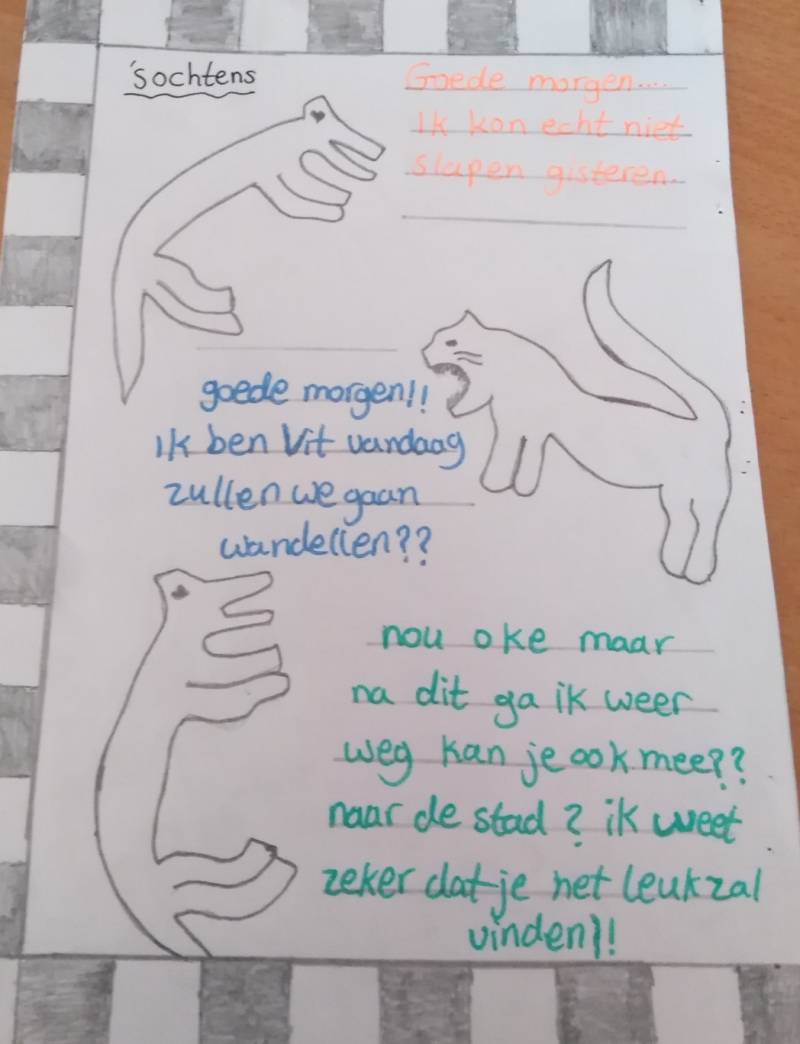 'sochtens
Goede morgen....
Ik kon echt niet
slapen gisteren.
goede morgen!!
ik ben Vit vandaag
zullen we gaan
wandellen??
nou oke maar
na dit ga ik weer
weg kan je ook mee??
naar de stad? ik weet
zeker dat je het leuk zal
vinden!!